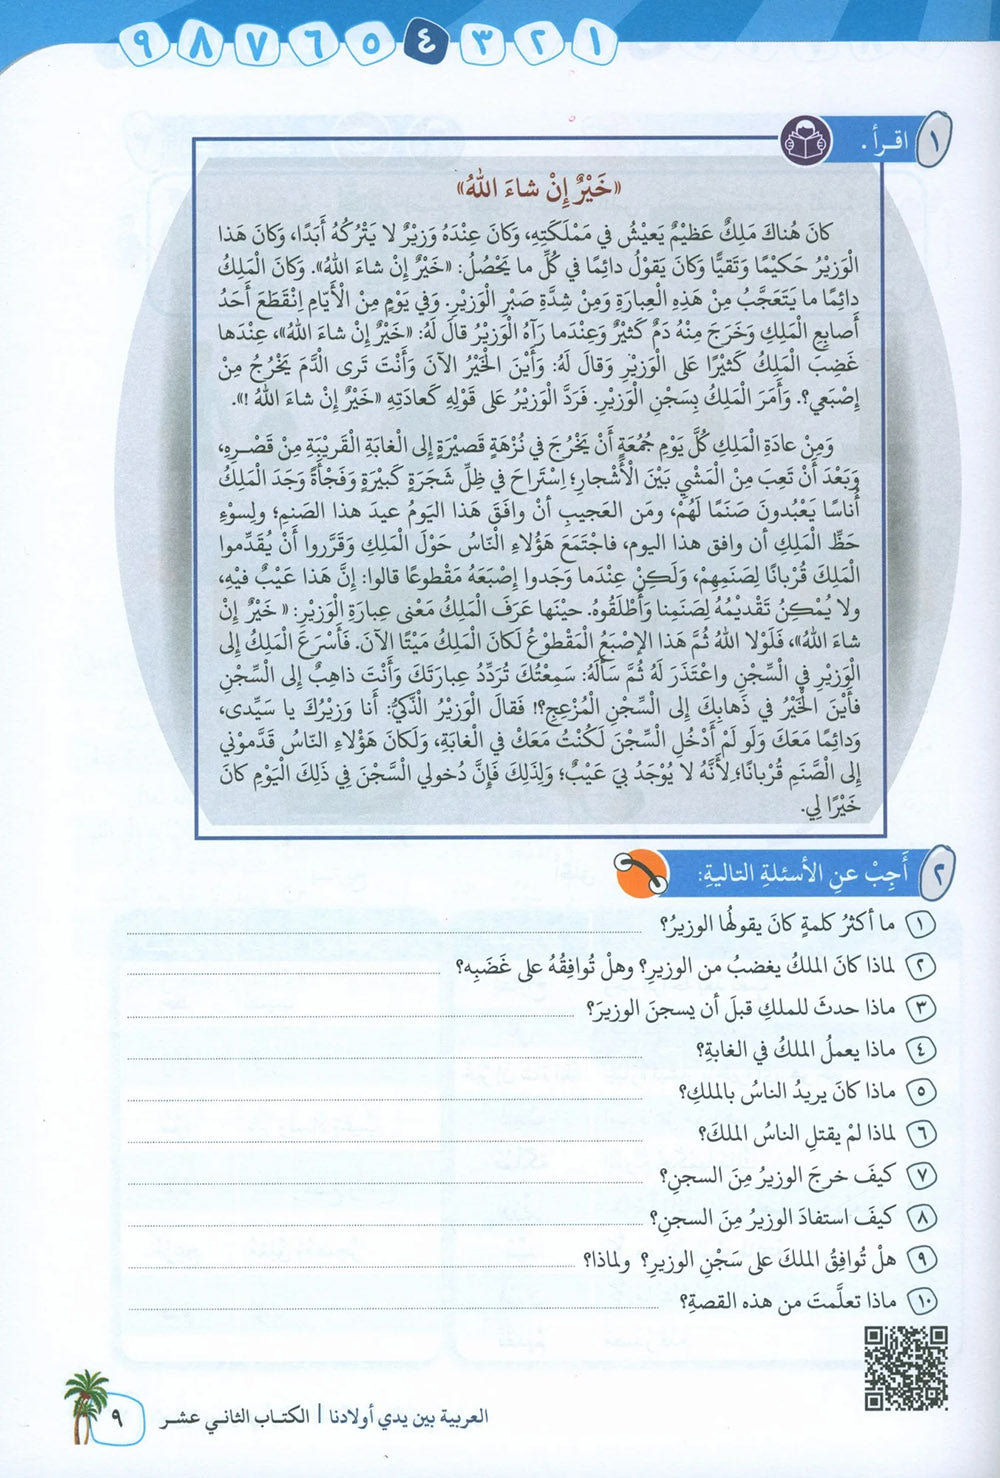 ١ ٢ ٣ ٤ ٥ ٦ ٧ ٨ ٩
١ اقـرأ .
«خَيْرٌ إِنْ شاءَ اللهُ»
كانَ هُناكَ مَلِكٌ عَظِيْمٌ يَعِيْشُ في مَمْلَكَتِهِ، وَكانَ عِنْدَهُ وَزِيْرٌ لا يَتْرُكُهُ أَبَدًا، وَكانَ هَذا
الْوَزِيْرُ حَكِيْمًا وَتَقيًّا وَكانَ يَقوْلُ دائِمًا في كُلِّ ما يَحْصُلُ: «خَيْرٌ إِنْ شاءَ اللهُ». وَكانَ الْمَلِكُ
دائِمًا ما يَتَعَجَّبُ مِنْ هَذِهِ الْعِبارَةِ وَمِنْ شِدَّةِ صَبْرِ الْوَزِيْرِ. وَفي يَوْمٍ مِنْ الْأَيّامِ اِنْقَطَعَ أَحَدُ
أَصابِعِ الْمَلِكِ وَخَرَجَ مِنْهُ دَمٌ كَثيْرٌ وَعِنْدَما رَآهُ الْوَزِيْرُ قالَ لَهُ: «خَيْرٌ إِنْ شاءَ اللهُ»، عِنْدَها
غَضِبَ الْمَلِكُ كَثيْرًا عَلى الْوَزِيْرِ وَقالَ لَهُ: وَأَيْنَ الْخَيْرُ الآنَ وَأَنْتَ تَرى الدَّمَ يَخْرُجُ مِنْ
إِصْبَعي؟. وَأَمَرَ الْمَلِكُ بِسَجْنِ الْوَزِيْرِ. فَرَدَّ الْوَزِيْرُ عَلى قَوْلِهِ كَعادَتِهِ «خَيْرٌ إِنْ شاءَ اللهُ !».
وَمِنْ عادَةِ الْمَلِكِ كُلَّ يَوْمِ جُمُعَةٍ أَنْ يَخْرُجَ في نُزْهَةٍ قَصيْرَةٍ إِلى الْغابَةِ الْقَريْبَةِ مِنْ قَصْـرِهِ،
وَبَعْدَ أَنْ تَعِبَ مِنْ الْمَشْيِ بَيْنَ الْأَشْجارِ؛ اِسْتَراحَ في ظِلِّ شَجَرَةٍ كَبيْرَةٍ وَفَجْأَةً وَجَدَ الْمَلِكُ
أُناسًا يَعْبُدونَ صَنَمًا لَهُمْ، ومَن العَجيبِ أنْ وافَقَ هَذا اليَومُ عيدَ هذا الصَنمِ؛ ولِسوْءِ
حَظِّ الْمَلِكِ أن وافق هذا اليوم، فاجْتَمَعَ هَؤُلاءِ النّاسُ حَوْلَ الْمَلِكِ وَقَرَّروا أَنْ يُقَدِّموا
الْمَلِكَ قُرْبانًا لِصَنَمِهِمْ، وَلَكِنْ عِنْدَما وَجَدوا إِصْبَعَهُ مَقْطوعًا قالوا: إِنَّ هَذا عَيْبٌ فيْهِ،
ولا يُمْكِنُ تَقْديْمُهُ لِصَنَمِنا وَأَطْلَقُوهُ. حيْنَها عَرَفَ الْمَلِكُ مَعْنى عِبارَةِ الْوَزِيْرِ: « خَيْرٌ إِنْ
شاءَ اللهُ»، فَلَوْلا اللهُ ثُمَّ هَذا الإصْبَعُ الْمَقْطوْعُ لَكانَ الْمَلِكُ مَيْتًا الآنَ. فَأَسْرَعَ الْمَلِكُ إِلى
الْوَزِيْرِ في السِّجْنِ واعْتَذَرَ لَهُ ثُمَّ سَأَلَهُ: سَمِعْتُكَ تُرَدِّدُ عِبارَتَكَ وَأَنْتَ ذاهِبٌ إِلى السِّجْنِ
فأَيْنَ الْخَيْرُ في ذَهابِكَ إِلى السِّجْنِ الْمُزْعِجِ؟! فَقالَ الْوَزيْرُ الذَّكيُّ: أَنا وَزيْرُكَ يا سَيِّدى،
وَدائِمًا مَعَكَ وَلَو لَمْ أَدْخُلِ السِّجْنَ لَكُنْتُ مَعَكَ في الْغابَةِ، وَلَكانَ هَؤُلاءِ النّاسُ قَدَّموْني
إِلى الْصَّنَمِ قُرْبانًا؛ لِأَنَّهُ لا يُوْجَدُ بيَ عَيْبٌ؛ وَلِذَلِكَ فَإِنَّ دُخولي السَّجْنَ في ذَلِكَ الْيَوْمِ كانَ
خَيْرًا لِي.
٢ أَجِبْ عنِ الأسئلةِ التاليةِ:
١ ما أكثرُ كلمةٍ كانَ يقولهُا الوزيرُ؟
٢ لماذا كانَ الملكُ يغضبُ من الوزيرِ؟ وهلْ تُوافِقُهُ على غَضَبِه؟
٣ ماذا حدثَ للملكِ قبلَ أن يسجنَ الوزيرَ؟
٤ ماذا يعملُ الملكُ في الغابةِ؟
٥ ماذا كانَ يريدُ الناسُ بالملكِ؟
٦ لماذا لمْ يقتلِ الناسُ الملكَ؟
٧ كيفَ خرجَ الوزيرُ مِنَ السجنِ؟
٨ كيفَ استفادَ الوزيرُ مِنَ السجنِ؟
٩ هلْ تُوافِقُ الملكَ على سَجْنِ الوزيرِ؟ ولماذا؟
١٠ ماذا تعلَّمتَ من هذه القصةِ؟
العربية بين يدي أولادنا | الكتـاب الثانـي عشـر
٩